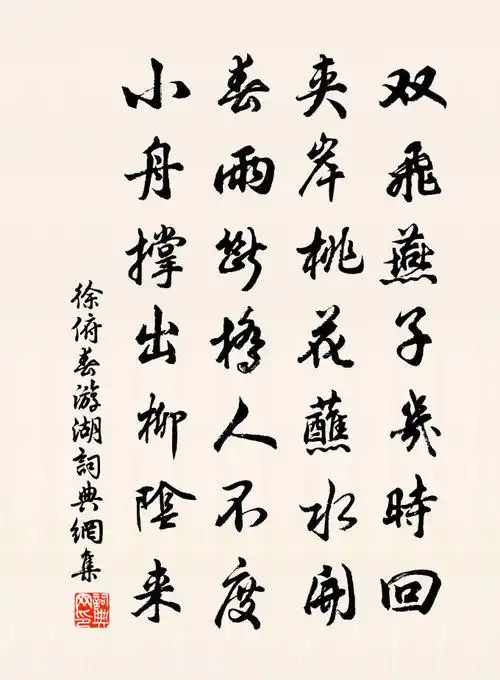 双飛燕子幾時回
夾岸桃花蘸水開
春雨斷橋人不度
小舟撐出柳陰来
徐俯春游湖詞典網集